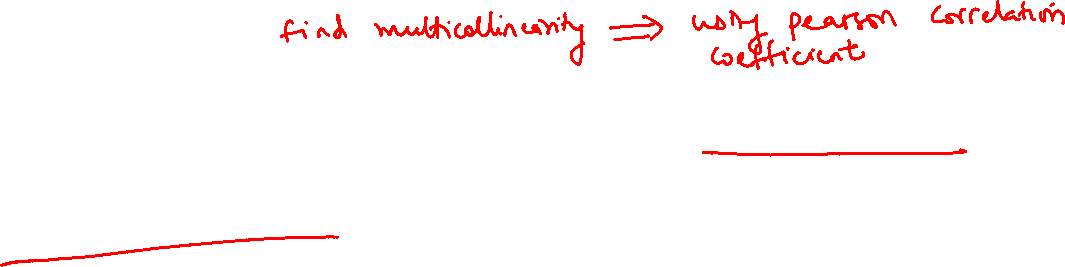 find multicollinearity ⇒ using pearson correlation
coefficient